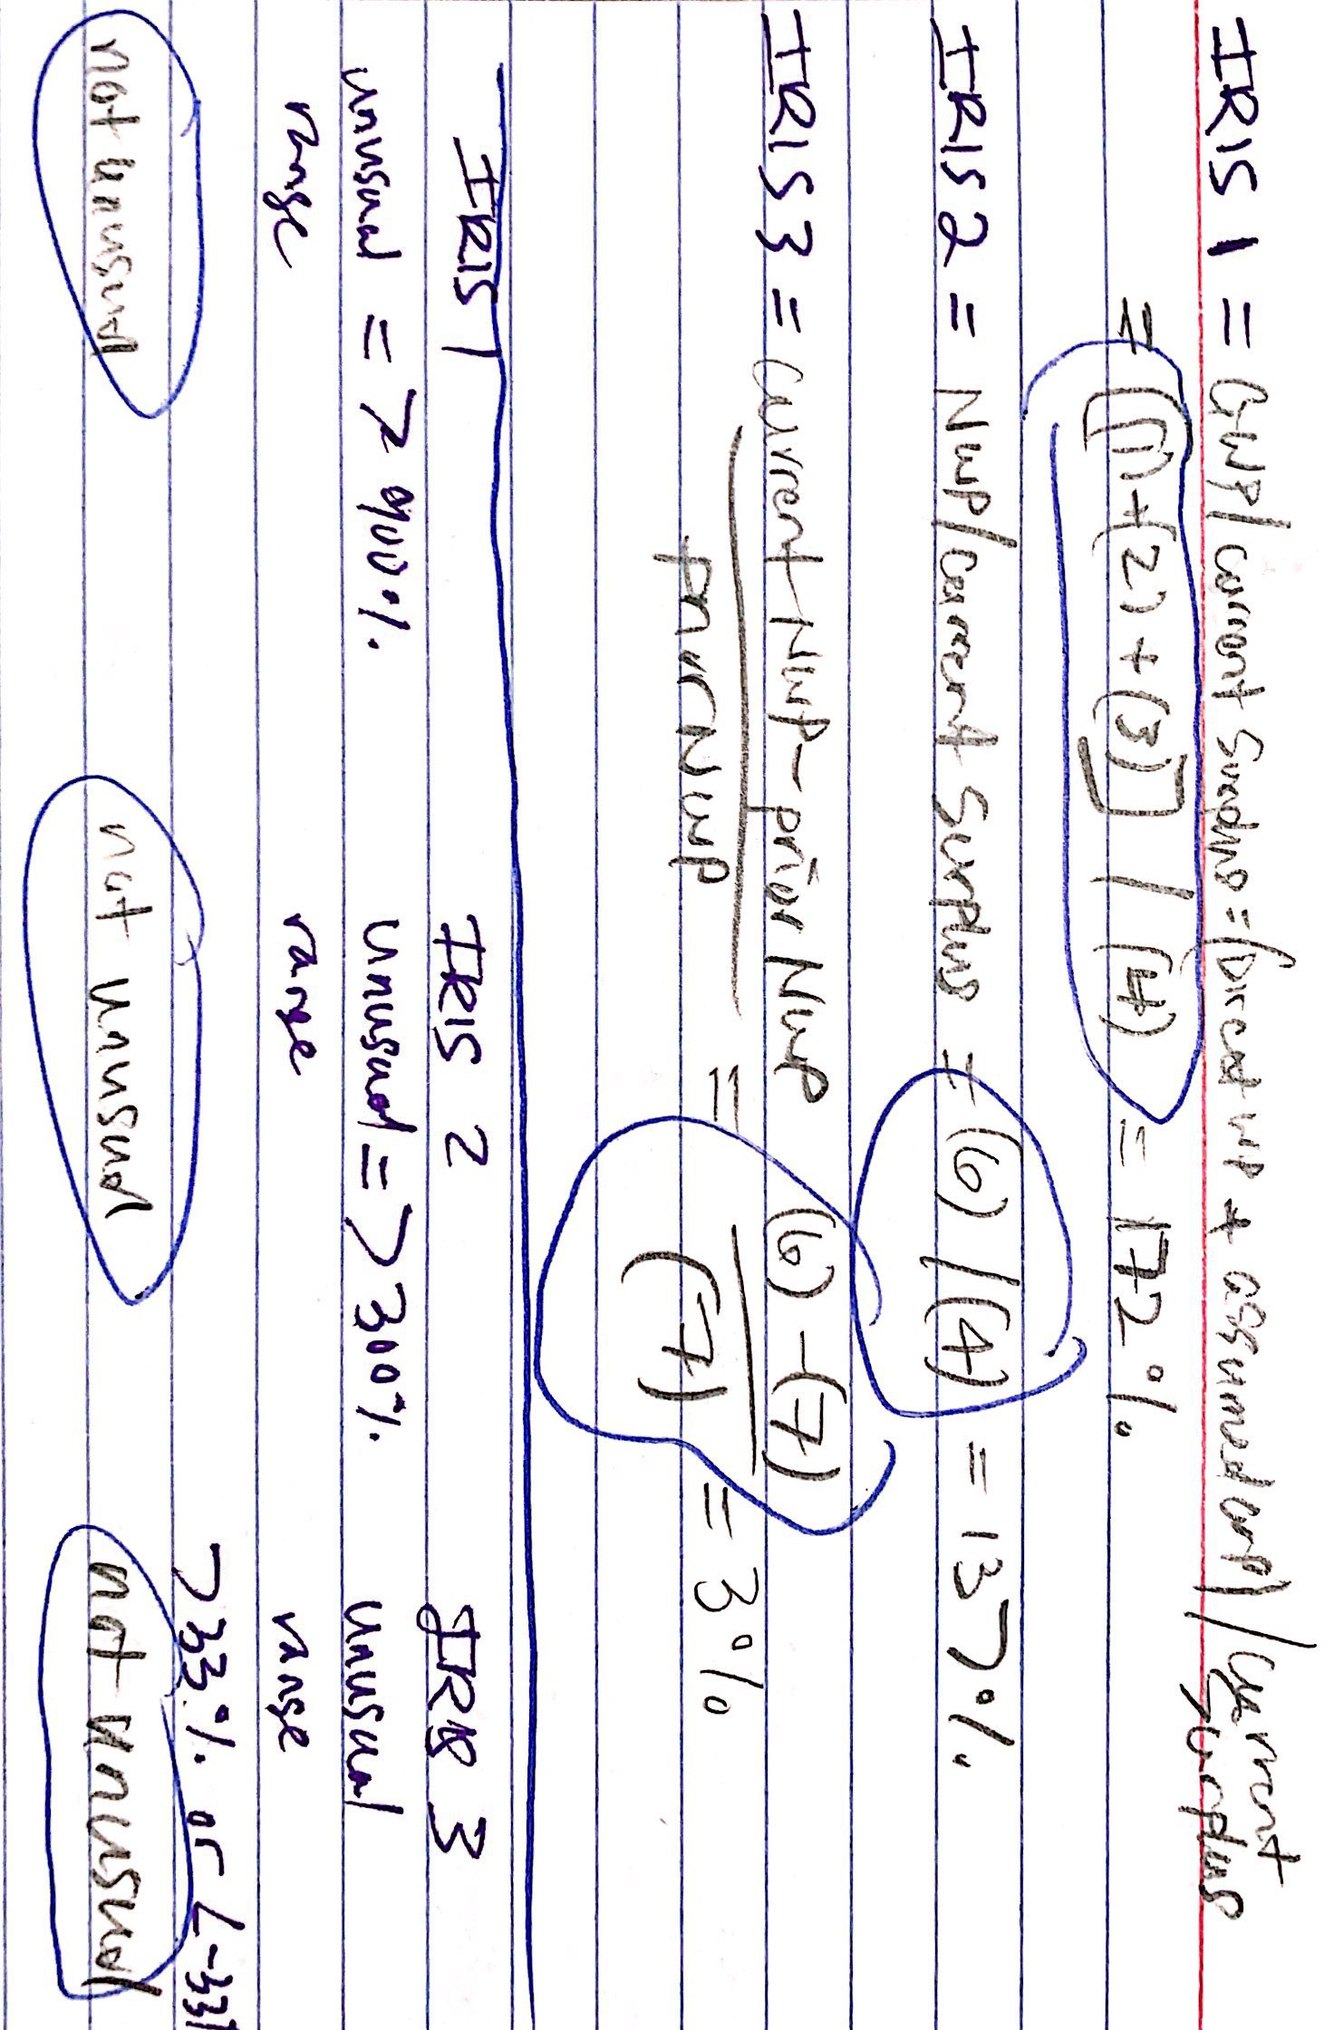 IRIS 1 = GWP/current Surplus = (Direct WP + assumed WP)/current Surplus
= [(1)+(2)+(3)] / (4) = 172%.
IRIS 2 = NWP/current Surplus = (6)/(4) = 137%.
IRIS 3 = current NWP - prior NWP = (6)-(7) = 3%
prior NWP (7)
IRIS 1 IRIS 2 IRIS 3
unusual = > 900%. unusual = >300%. unusual
range range range
>33%. or <-33%
not unusual not unusual not unusual